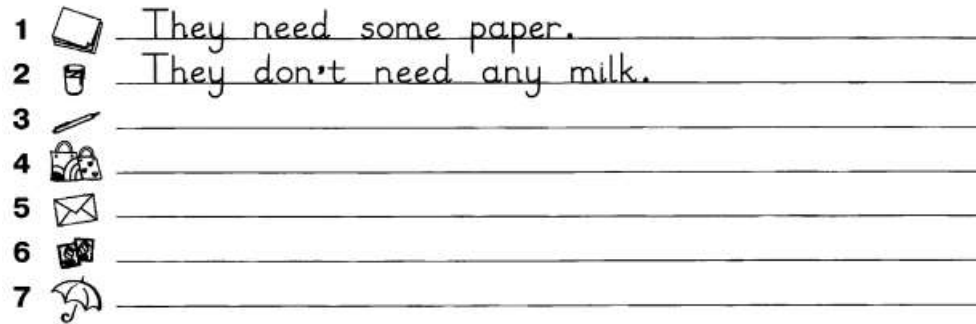 1 They need some paper.
2 They don't need any milk.
3
4
5
6
7